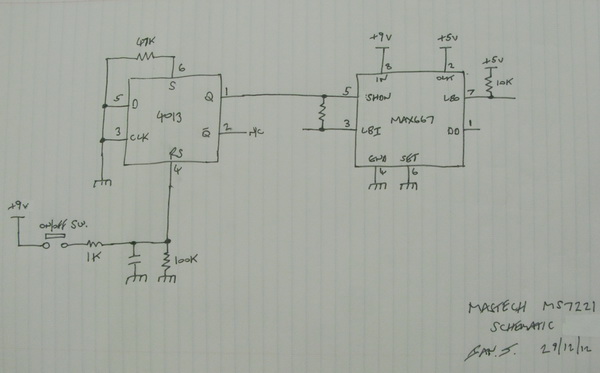 47K
6
S
5
D
Q
1
4013
3
CLK
Q
2
N/C
RS
4
+9V
ON/OFF SW.
1K
100K
+9V
+5V
+5V
8
2
IN
OUT
10K
5
SHDN
LBO
7
MAX667
3
LBI
DD
1
GND
SET
4
6
MASTECH MS7221
SCHEMATIC
29/12/12